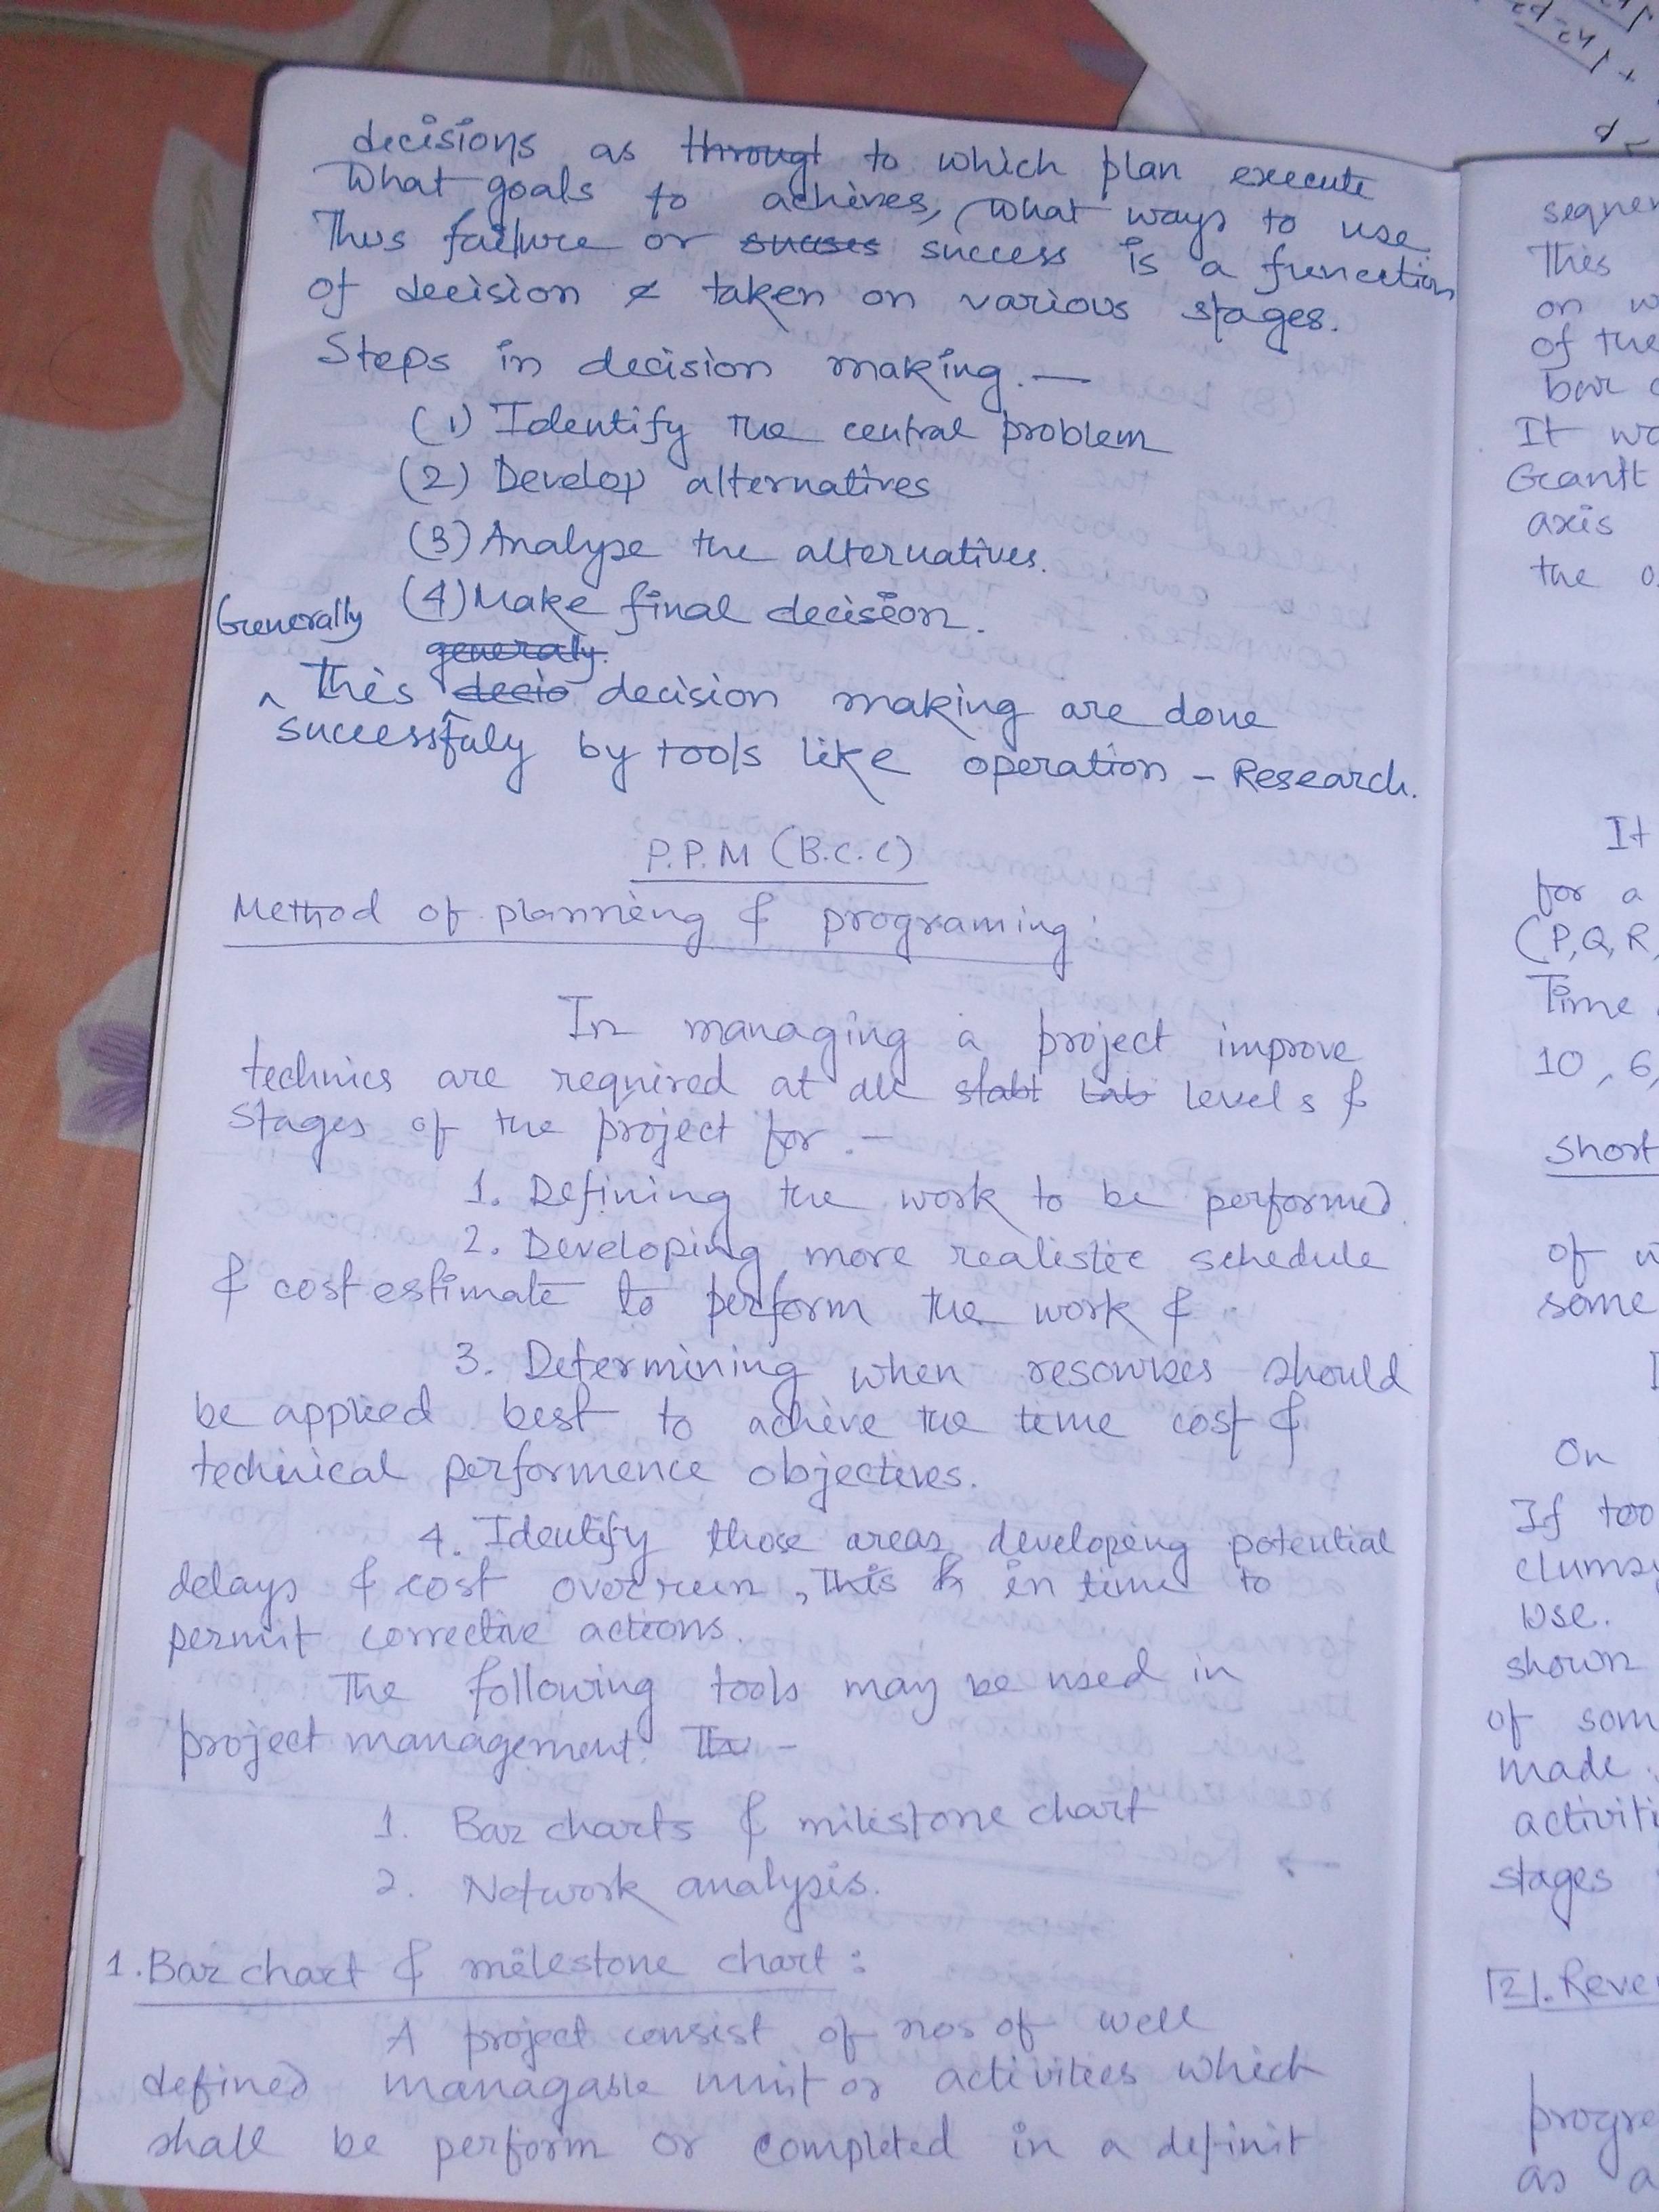 decisions as through to which plan execute
What goals to achives, what ways to use.
Thus failure or sucses success is a function
of decision & taken on various stages.
Steps in decision making. —
(1) Identify the central problem
(2) Develop alternatives
(3) Analyse the alternatives.
(4) Make final decision.
Generally
generaly.
^ This decio decision making are done
successfuly by tools like operation - Research.
P.P.M (B.C.C)
Method of planning & programing:
In managing a project improve
technics are required at all levels &
stages of the project for. -
1. Defining the work to be performed.
2. Developing more realistic schedule
& cost estimate to perform the work &
3. Determining when resources should
be applied best to achive the time cost &
technical performence objectives.
4. Identify those areas developing potential
delays & cost overrun, This in time to
permit corrective actions.
The following tools may be used in
project management. The -
1. Bar charts & milestone chart
2. Network analysis.
1. Bar chart & milestone chart:
A project consist of nos of well
defined managable unit or activities which
shall be perform or completed in a definit
This
on
of the
bar
It
Gantt
axis
the
It
for a
(P,Q,R,
Time
10, 6,
Short
of
some
On
If too
clumsy
use.
shown
of som
made.
activiti
stages
[2]. Reve
progre
as a